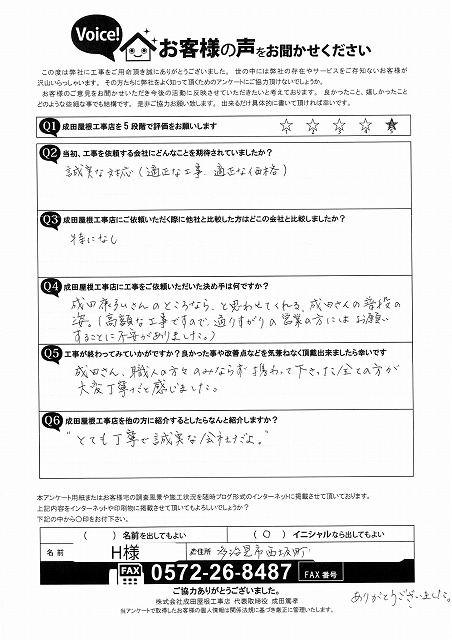 Voice!
お客様の声をお聞かせください
この度は弊社に工事をご用命頂き誠にありがとうございました。 世の中には弊社の存在やサービスをご存知ないお客様が
沢山いらっしゃいます。 その方たちに弊社をよく知って頂くためのアンケートにご協力頂けないでしょうか。
お客様のご意見をお聞かせいただき今後の活動に反映させていただきたいと考えております。 良かったこと、嬉しかったこと
どのような些細な事でも結構です。 是非ご協力お願い致します。 出来るだけ具体的に書いて頂ければ幸いです。
Q1 成田屋根工事店を5段階で評価をお願いします ☆ ☆ ☆ ☆ ★
Q2 当初、工事を依頼する会社にどんなことを期待されていましたか?
誠実な対応(適正な工事、適正な価格)
Q3 成田屋根工事店にご依頼いただく際に他社と比較した方はどこの会社と比較しましたか?
特になし
Q4 成田屋根工事店に工事をご依頼いただいた決め手は何ですか?
成田 さんのところなら、と思わせてくれる、成田さんの普段の
姿。(高額な工事ですので、通りすがりの営業の方にはお願い
することに不安がありました。)
Q5 工事が終わってみていかがですか?良かった事や改善点などを気兼ねなく頂戴出来ましたら幸いです
成田さん、職人の方々のみならず携わって下さった全ての方が
大変丁寧だと感じました。
Q6 成田屋根工事店を他の方に紹介するとしたらなんと紹介しますか?
"とても丁寧で誠実な会社だよ。"
本アンケート用紙またはお客様宅の調査風景や施工状況を随時ブログ形式のインターネットに掲載させて頂いております。
上記内容をインターネットや印刷物に掲載させて頂いてもよろしいでしょうか?
下記の中から〇印をお付下さい。
( )名前を出してもよい (〇)イニシャルなら出してもよい
名前 H様 ご住所 多治見市西坂町
FAX 0572-26-8487 FAX番号
ご協力ありがとうございました。
株式会社成田屋根工事店 代表取締役 成田篤孝
当アンケートで取得したお客様の個人情報は関係法規に基づき厳正に管理いたします。
ありがとうございました。